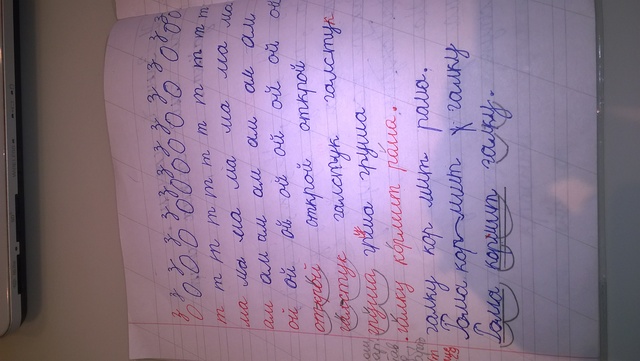 т т т т т т т т т т
ма ма ма ма ма ма ма ма
ам ам ам ам ам ам ам ам
ой ой ой ой ой ой ой ой
открой открой открой
галстук галстук галстук
груша груша груша
галку кормит рама.
галку кор мит рама.
Рама кор мит галку
Рама кормит галку.